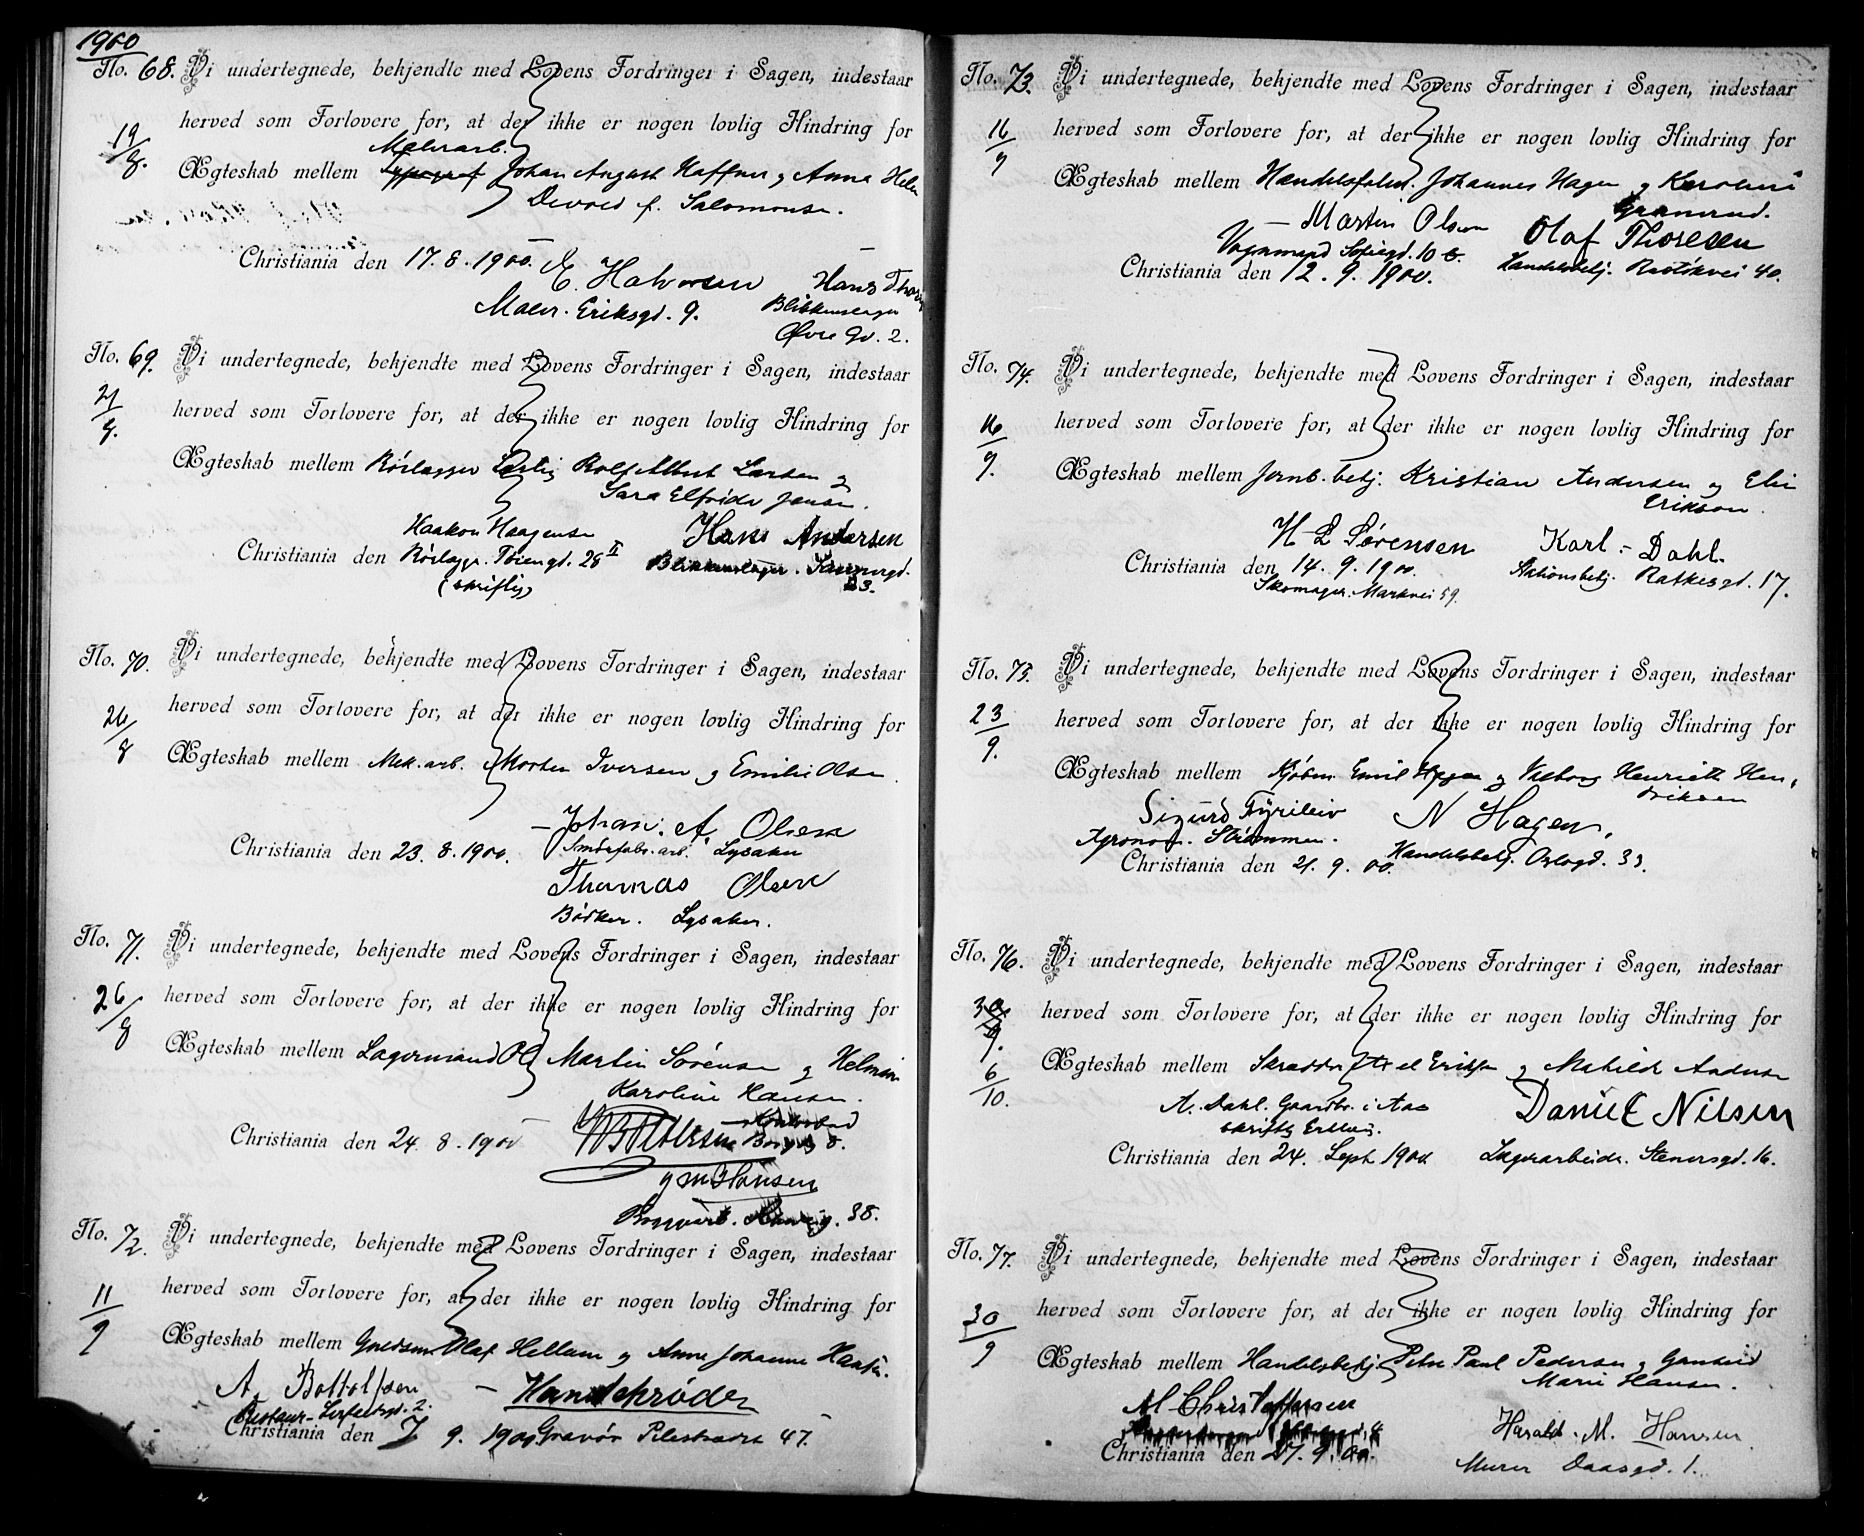 1900
No. 68. Vi undertegnede, bekjendte med Lovens Fordringer i Sagen, indestaar
19/8. herved som Forlovere for, at der ikke er nogen lovlig Hindring for
Malerarb.
Ægteskab mellem Typograf Johan August Haffner og Anna Helen
Devold f. Salomonsen.
Christiania den 17. 8. 1900. E. Halvorsen Hans
Maler. Eriksgd. 9. Blikkenslager
Øvre Gd. 2.
No. 69. Vi undertegnede, bekjendte med Lovens Fordringer i Sagen, indestaar
herved som Forlovere for, at der ikke er nogen lovlig Hindring for
Ægteskab mellem Rørlægger Rolf Albert Larsen og
Sara Elfride Jensen.
Haakon Haagensen Hans Andersen
Christiania den Rørlægger. Tøiengd. 28 II Blikkenslager.
(skriftlig) 23.
No. 70. Vi undertegnede, bekjendte med Lovens Fordringer i Sagen, indestaar
26/8 herved som Forlovere for, at der ikke er nogen lovlig Hindring for
Ægteskab mellem Mek. arb. Morten Iversen og Emilie Olsen.
Johan. A. Olsen
Christiania den 23. 8. 1900. Smørfabr. arb. Lysaker
Thomas Olsen
Bødker. Lysaker.
No. 71. Vi undertegnede, bekjendte med Lovens Fordringer i Sagen, indestaar
26/8 herved som Forlovere for, at der ikke er nogen lovlig Hindring for
Ægteskab mellem Lagermand Ole Martin Sørensen og Helmine
Karoline Hansen.
Christiania den 24. 8. 1900 Pettersen 8.
Hansen
38.
No. 72. Vi undertegnede, bekjendte med Lovens Fordringer i Sagen, indestaar
11/9 herved som Forlovere for, at der ikke er nogen lovlig Hindring for
Ægteskab mellem Guldsm. Olaf Hellum og Anne Johanne Hansen.
A. Bottolfsen – Hans Schrøder
Christiania den 7. 9. 1900 Gravør Pilestrædet 47.
No. 73. Vi undertegnede, bekjendte med Lovens Fordringer i Sagen, indestaar
16/9 herved som Forlovere for, at der ikke er nogen lovlig Hindring for
Ægteskab mellem Handelsfuldm. Johannes Hagen og Karoline
Granerud.
– Martin Olsen Olaf Thoresen
Vognmand Sofiegd. 10 b. Handelsbetj. 40.
Christiania den 12. 9. 1900.
No. 74. Vi undertegnede, bekjendte med Lovens Fordringer i Sagen, indestaar
16/9. herved som Forlovere for, at der ikke er nogen lovlig Hindring for
Ægteskab mellem Jernb. betj. Kristian Andersen og Elin
Erikson.
H L Sørensen Karl Dahl.
Christiania den 14. 9. 1900. Aktionsbetj. Ratkesgd. 17.
Skomager. Markvei 59.
No. 75. Vi undertegnede, bekjendte med Lovens Fordringer i Sagen, indestaar
23/9. herved som Forlovere for, at der ikke er nogen lovlig Hindring for
Ægteskab mellem Kjøbm. Emil Hagen og Valborg Henriette Hen-
driksen
Sigurd Fyrileiv N Hagen.
Agronom. Strømmen.
Christiania den 21. 9. 00. Handelsbetj. Oslogd. 33.
No. 76. Vi undertegnede, bekjendte med Lovens Fordringer i Sagen, indestaar
30/9. herved som Forlovere for, at der ikke er nogen lovlig Hindring for
6/10. Ægteskab mellem Skrædder Eriksen og Mathilde Andersen
A. Dahl. Gaardbr. i Aas Daniel Nilsen
skriftlig Erklær.
Christiania den 24. Sept. 1900. Lagerarbeider. Stenersgd. 16.
No. 77. Vi undertegnede, bekjendte med Lovens Fordringer i Sagen, indestaar
30/9 herved som Forlovere for, at der ikke er nogen lovlig Hindring for
Ægteskab mellem Handelsbetj. Peter Paul Pedersen og Gunhild
Marie Hansen.
M Christoffersen Harald. M. Hansen.
Christiania den 27. 9. 00. Murer Daasgd. 1.